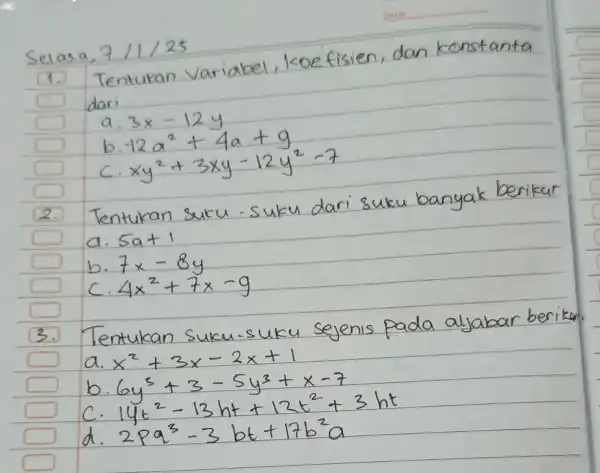 Selasa, 7/1/25
1. Tentukan variabel, koefisien, dan konstanta
dari
a. 3x - 12y
b. -12a² + 4a + 9
c. xy² + 3xy - 12y² - 7
2. Tentukan suku-suku dari suku banyak berikut
a. 5a + 1
b. 7x - 8y
c. 4x² + 7x - 9
3. Tentukan suku-suku sejenis pada aljabar berikut.
a. x² + 3x - 2x + 1
b. 6y⁵ + 3 - 5y³ + x - 7
c. 14t² - 13ht + 12t² + 3ht
d. 2pq³ - 3bt + 17b²a